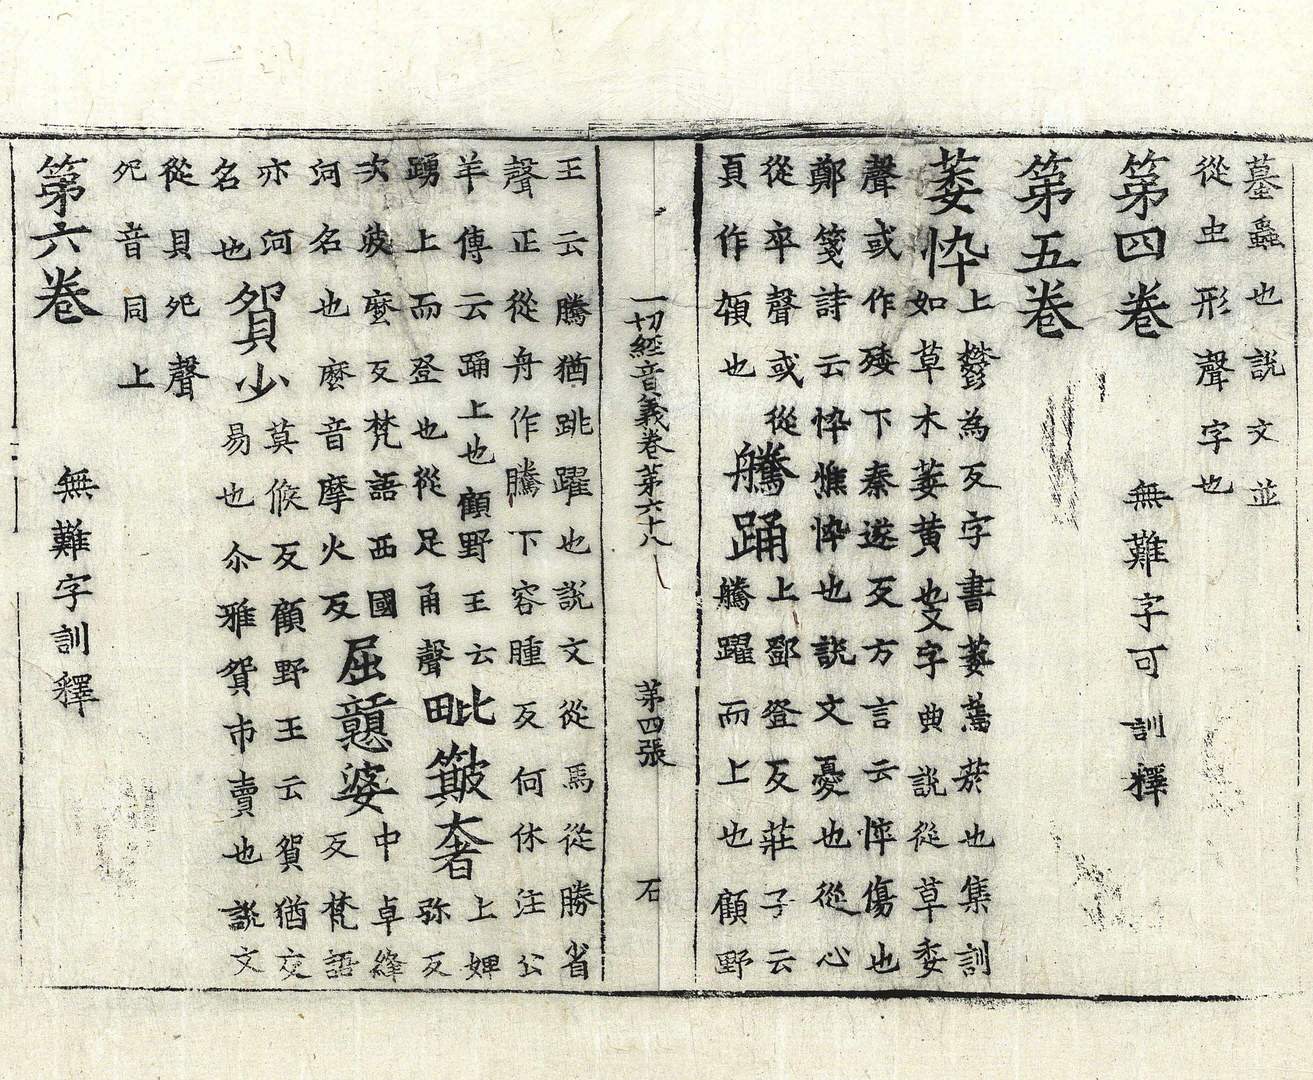 墓蟲也説文並
從虫形聲字也
第四卷 無難字可訓釋
第五卷
萎悴
上鬱為反字書萎蔫菸也集訓
如草木萎黄也又字典説從草委
聲或作矮下秦遂反方言云悴傷也
鄭箋詩云悴憔悴也説文憂也從心
從卒聲或從
頁作顇也
騰踊
上鄧登反莊子云
騰躍而上也顧野
一切經音義卷第六十八 第四張 石
王云騰猶跳躍也説文從馬從勝省
聲正從舟作騰下容腫反何休注公
羊傳云踊上也顧野王云
踴上而登也從足甬聲
毗簸奢
上婢
弥反
次波麼反梵語西國
河名也麼音摩火反
屈戇婆
中卓絳
反梵語
亦河
名也
貿少
莫候反顧野王云貿猶交
易也尒雅貿市賣也説文
從貝丣聲
丣音同上
第六卷 無難字訓釋